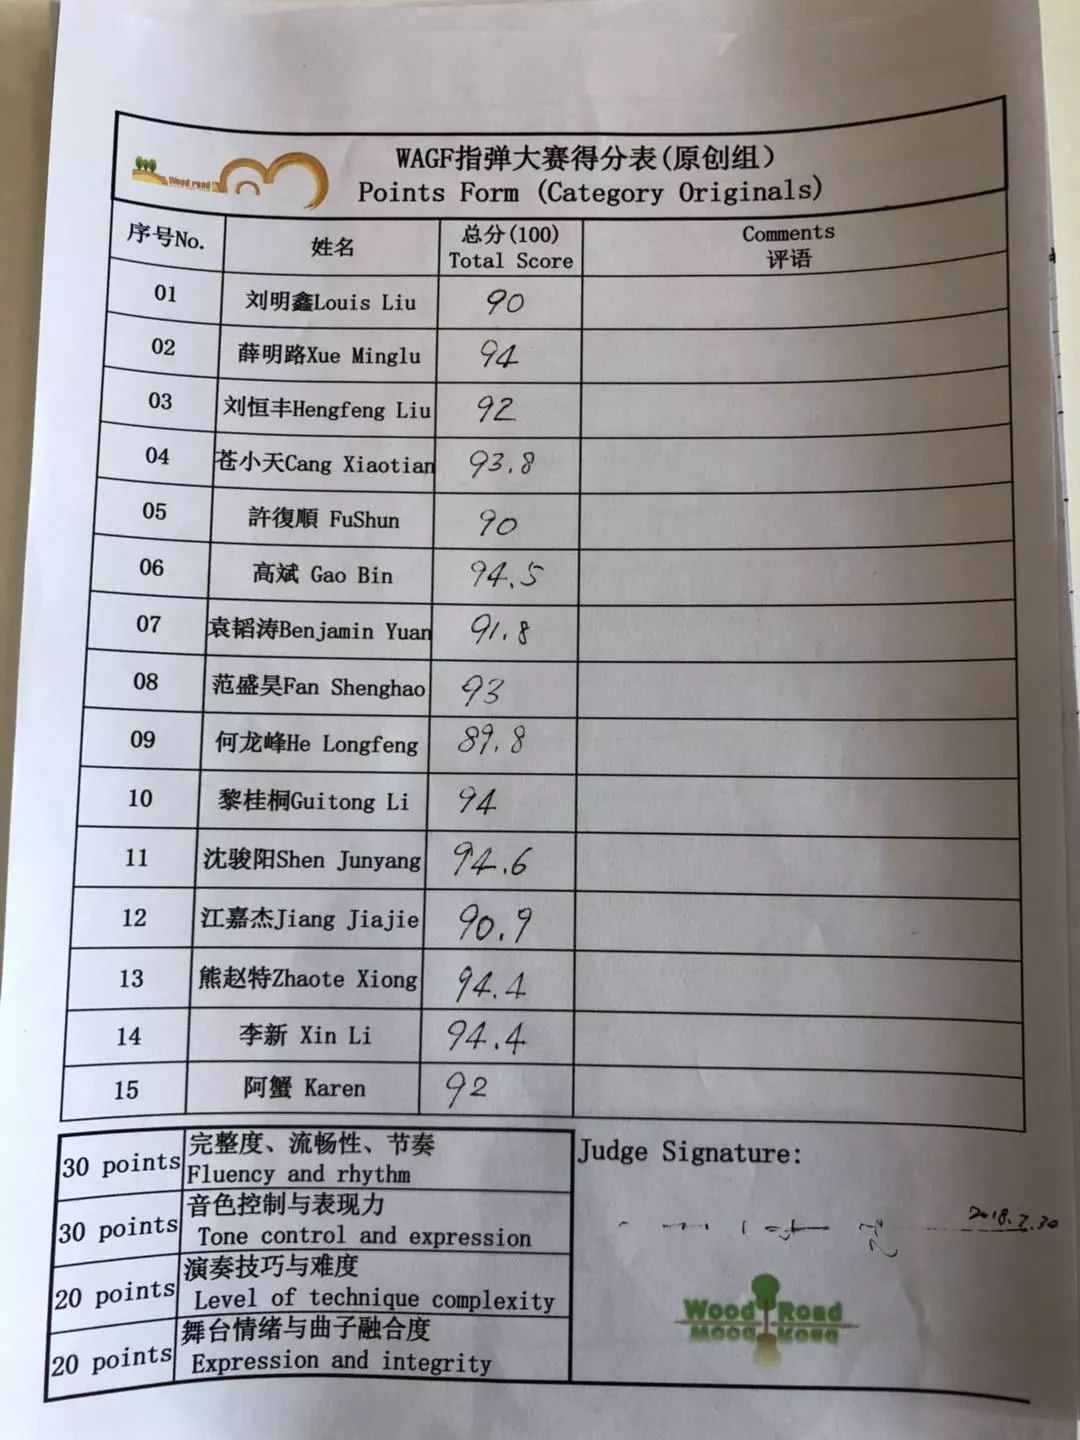 Wood road
WAGF指弹大赛得分表(原创组)
Points Form (Category Originals)
序号No. 姓名 总分(100) Total Score Comments 评语
01 刘明鑫Louis Liu 90
02 薛明路Xue Minglu 94
03 刘恒丰Hengfeng Liu 92
04 苍小天Cang Xiaotian 93.8
05 許復順 FuShun 90
06 高斌 Gao Bin 94.5
07 袁韬涛Benjamin Yuan 91.8
08 范盛昊Fan Shenghao 93
09 何龙峰He Longfeng 89.8
10 黎桂桐Guitong Li 94
11 沈骏阳Shen Junyang 94.6
12 江嘉杰Jiang Jiajie 90.9
13 熊赵特Zhaote Xiong 94.4
14 李新 Xin Li 94.4
15 阿蟹 Karen 92
30 points 完整度、流畅性、节奏
Fluency and rhythm
30 points 音色控制与表现力
Tone control and expression
20 points 演奏技巧与难度
Level of technique complexity
20 points 舞台情绪与曲子融合度
Expression and integrity
Judge Signature:
2018.7.30
Wood Road